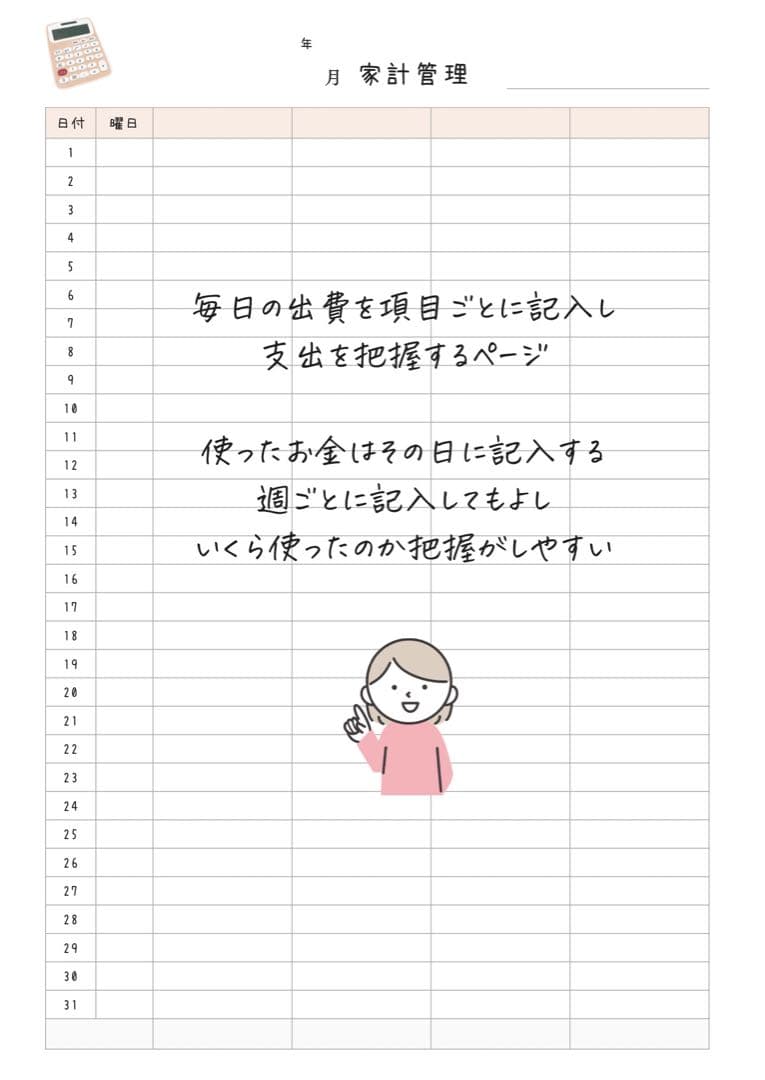 年
月 家計管理
日付 曜日
1
2
3
4
5
6
毎日の出費を項目ごとに記入し
7
8
支出を把握するページ
9
10
11
使ったお金はその日に記入する
12
13
週ごとに記入してもよし
14
15
いくら使ったのか把握がしやすい
16
17
18
19
20
21
22
23
24
25
26
27
28
29
30
31